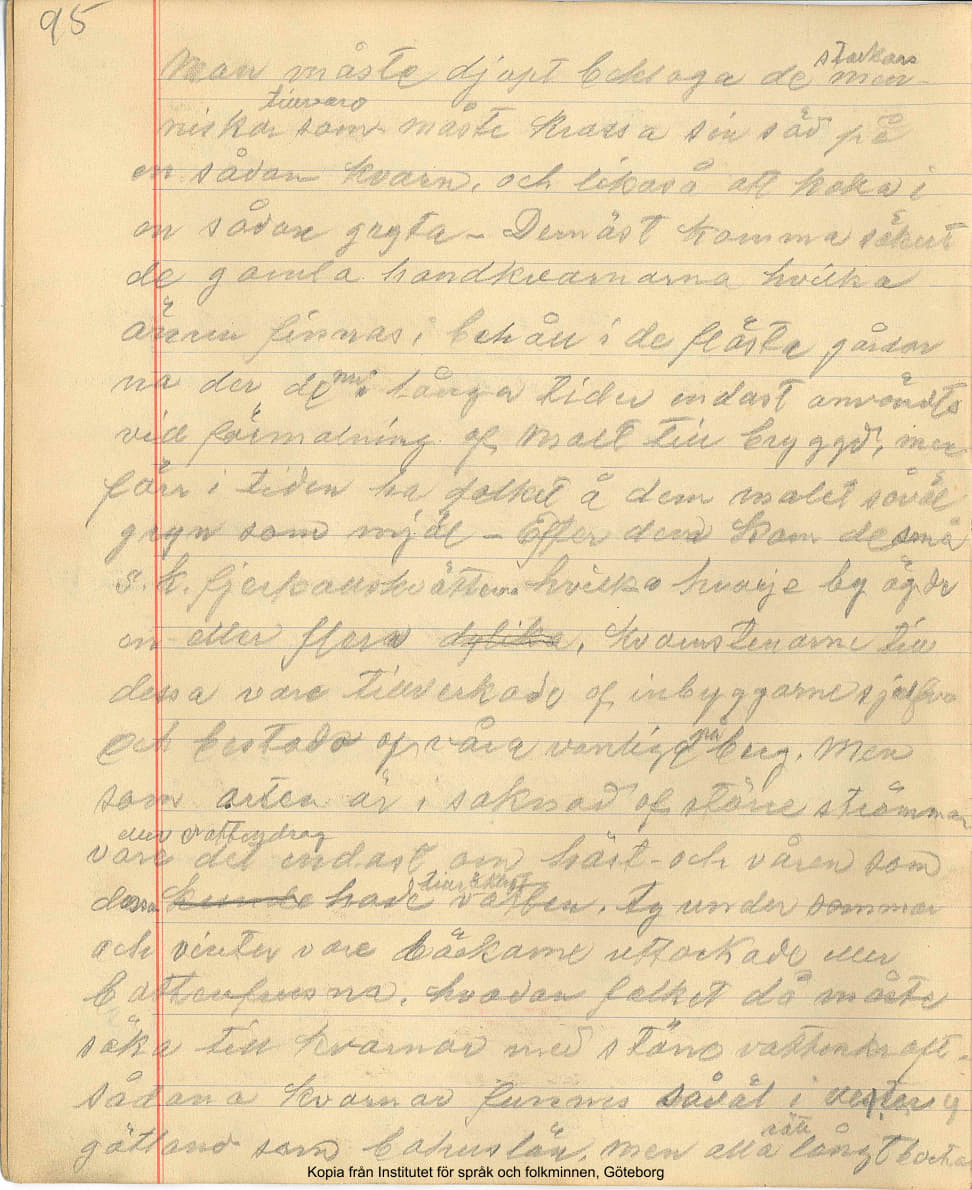 95
stackars
Man måste djupt beklaga de men-
tillvaro
niskor som måste krossa sin säd på
en sådan kvarn, och likaså att koka i
en sådan gryta - Dernäst komma säkert
de gamla handkvarnarna hvilka
ännu finnas i behåll i de flästa gårdar
nu
na der de i långa tider endast användts
vid förmalning af malt till brygd, men
förr i tiden ha folket å dem malet såväl
gryn som mjöl - Efter dem kom de små
s.k. hvilka hvarje by ägde
en eller flera dylika, kvarnstenarne till
dessa vare tillverkade af inbyggarne sjelfva
och bestods af våra vanliga berg. Men
som orten är i saknad af större strömmar
eller vattendrag
vare det endast om höst- och våren som
tillräckligt
dessa kunde hade vatten, ty under sommar
och vinter vare bäckarne uttorkade eller
bottenfrusna, hvadan folket då måste
söka till kvarnar med större vattenkraft -
sådana kvarnar funnos såväl i
götland som Bohuslän, men alla långt borta
Kopia från Institutet för språk och folkminnen, Göteborg